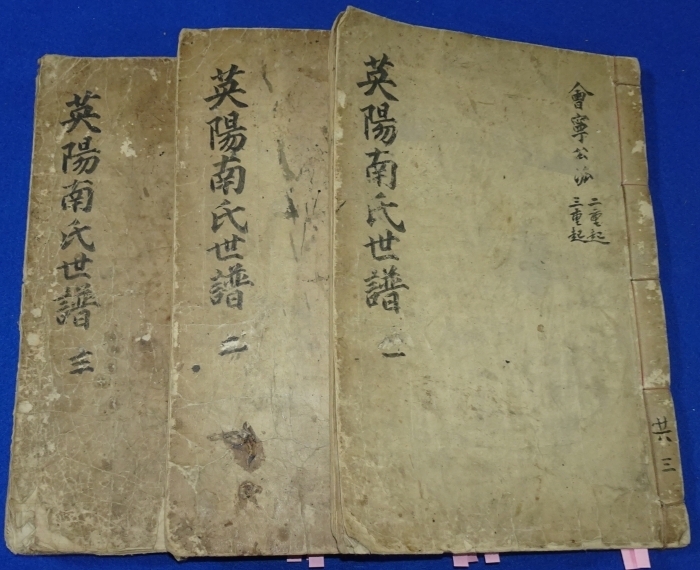 英陽南氏世譜 一
會寧公派
二重起
三重起
共三
英陽南氏世譜 二
英陽南氏世譜 三